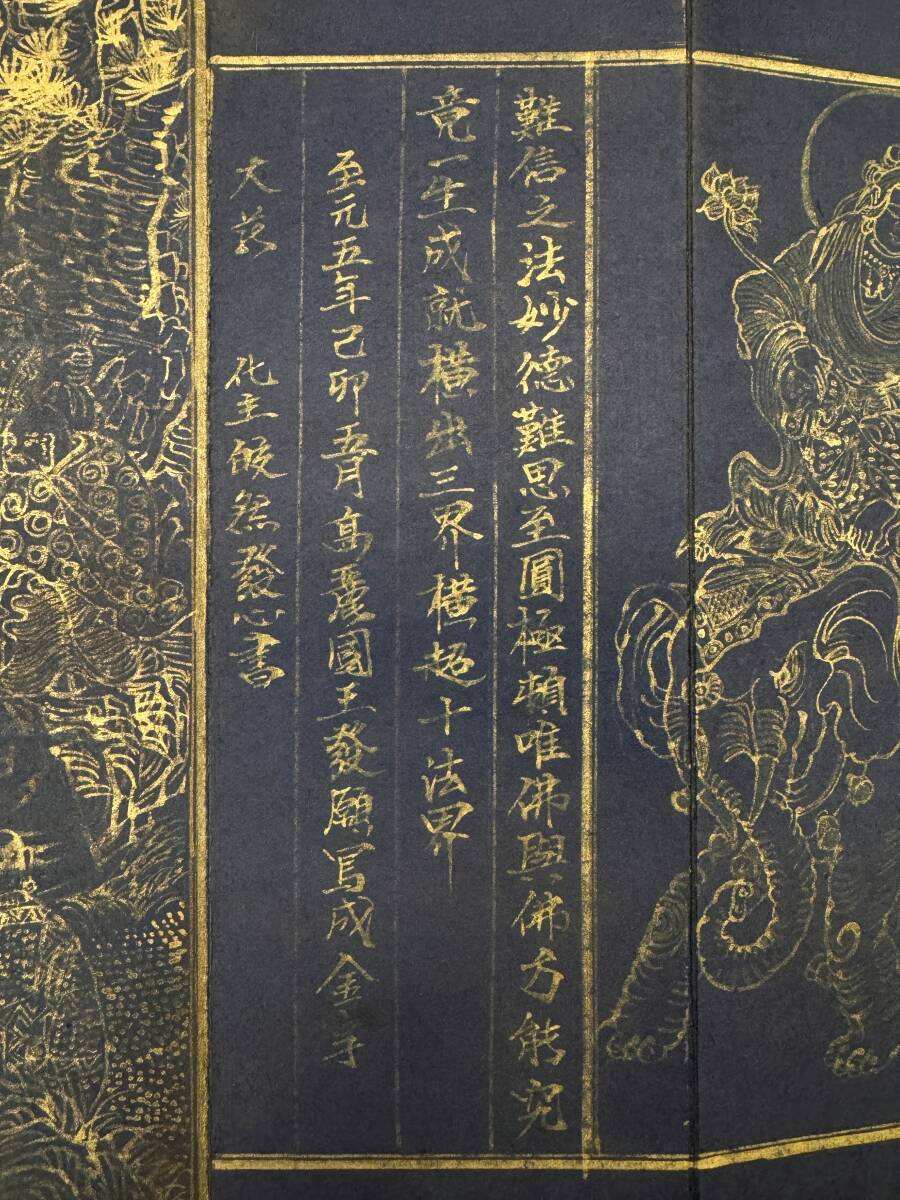 難信之法妙德難思至圓極頓唯佛與佛方能究
竟一生成就橫出三界橫超十法界
至元五年己卯五月高麗國王發願写成金字
大 化主皎然發心書